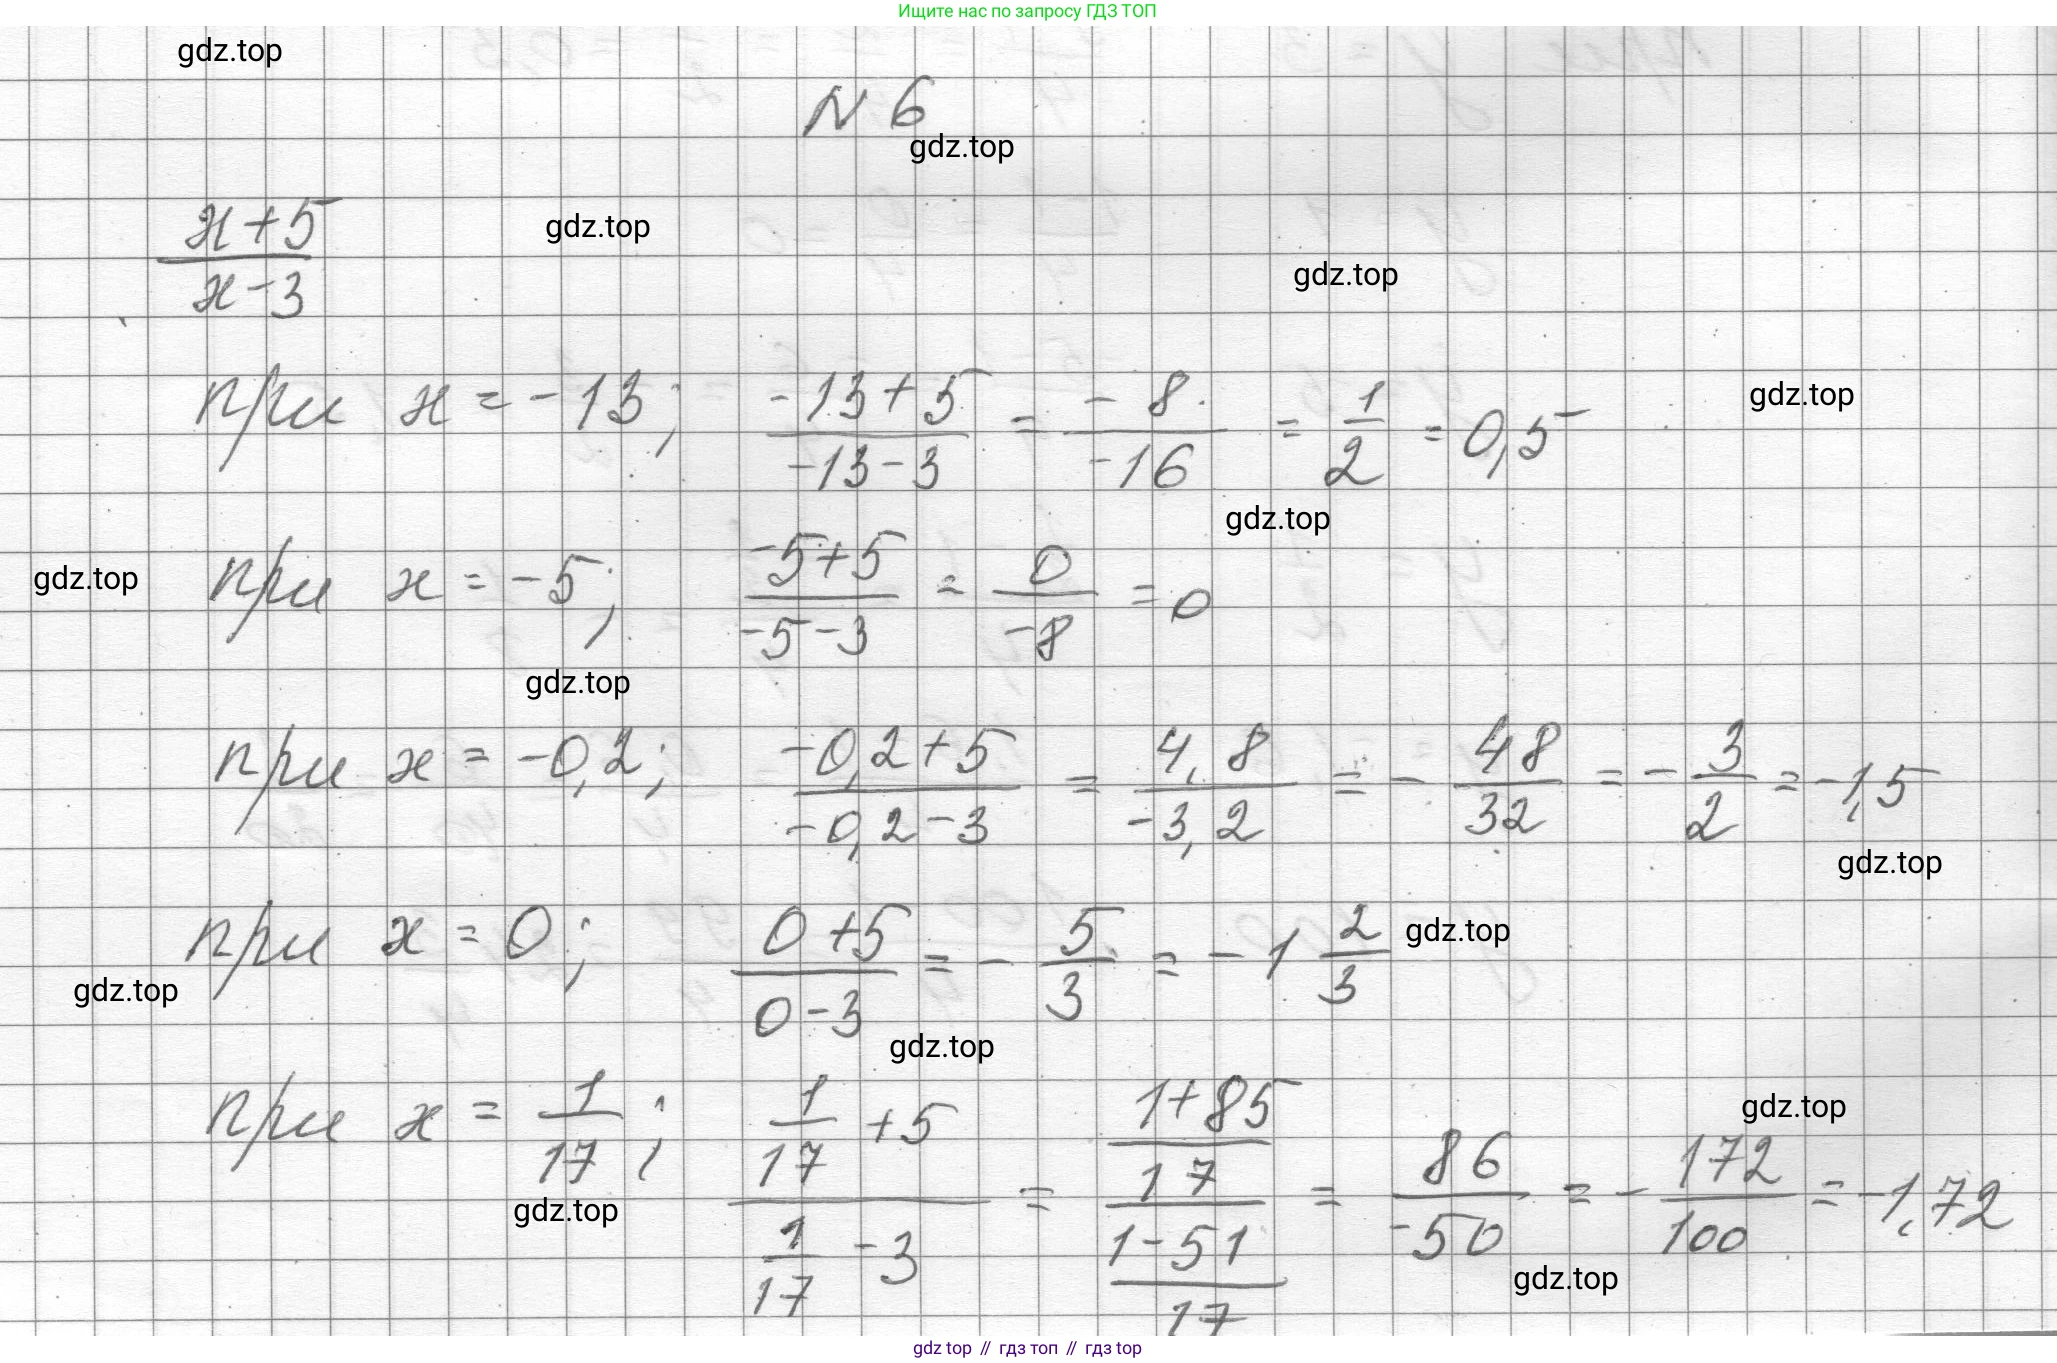 Ищите нас по запросу ГДЗ ТОП
gdz.top
N 6
gdz.top
(x+5)/(x-3)
gdz.top
gdz.top
при x = -13; (-13+5)/(-13-3) = (-8)/(-16) = 1/2 = 0,5
gdz.top
gdz.top
при x = -5; (-5+5)/(-5-3) = 0/(-8) = 0
gdz.top
gdz.top
при x = -0,2; (-0,2+5)/(-0,2-3) = (4,8)/(-3,2) = - 48/32 = - 3/2 = -1,5
gdz.top
при x = 0; (0+5)/(0-3) = - 5/3 = -1 2/3
gdz.top
gdz.top
gdz.top
при x = 1/17; (1/17 +5)/(1/17 -3) = ((1+85)/17)/((1-51)/17) = 86/(-50) = - 172/100 = -1,72
gdz.top
gdz.top
gdz.top
gdz top // гдз топ // гдз top